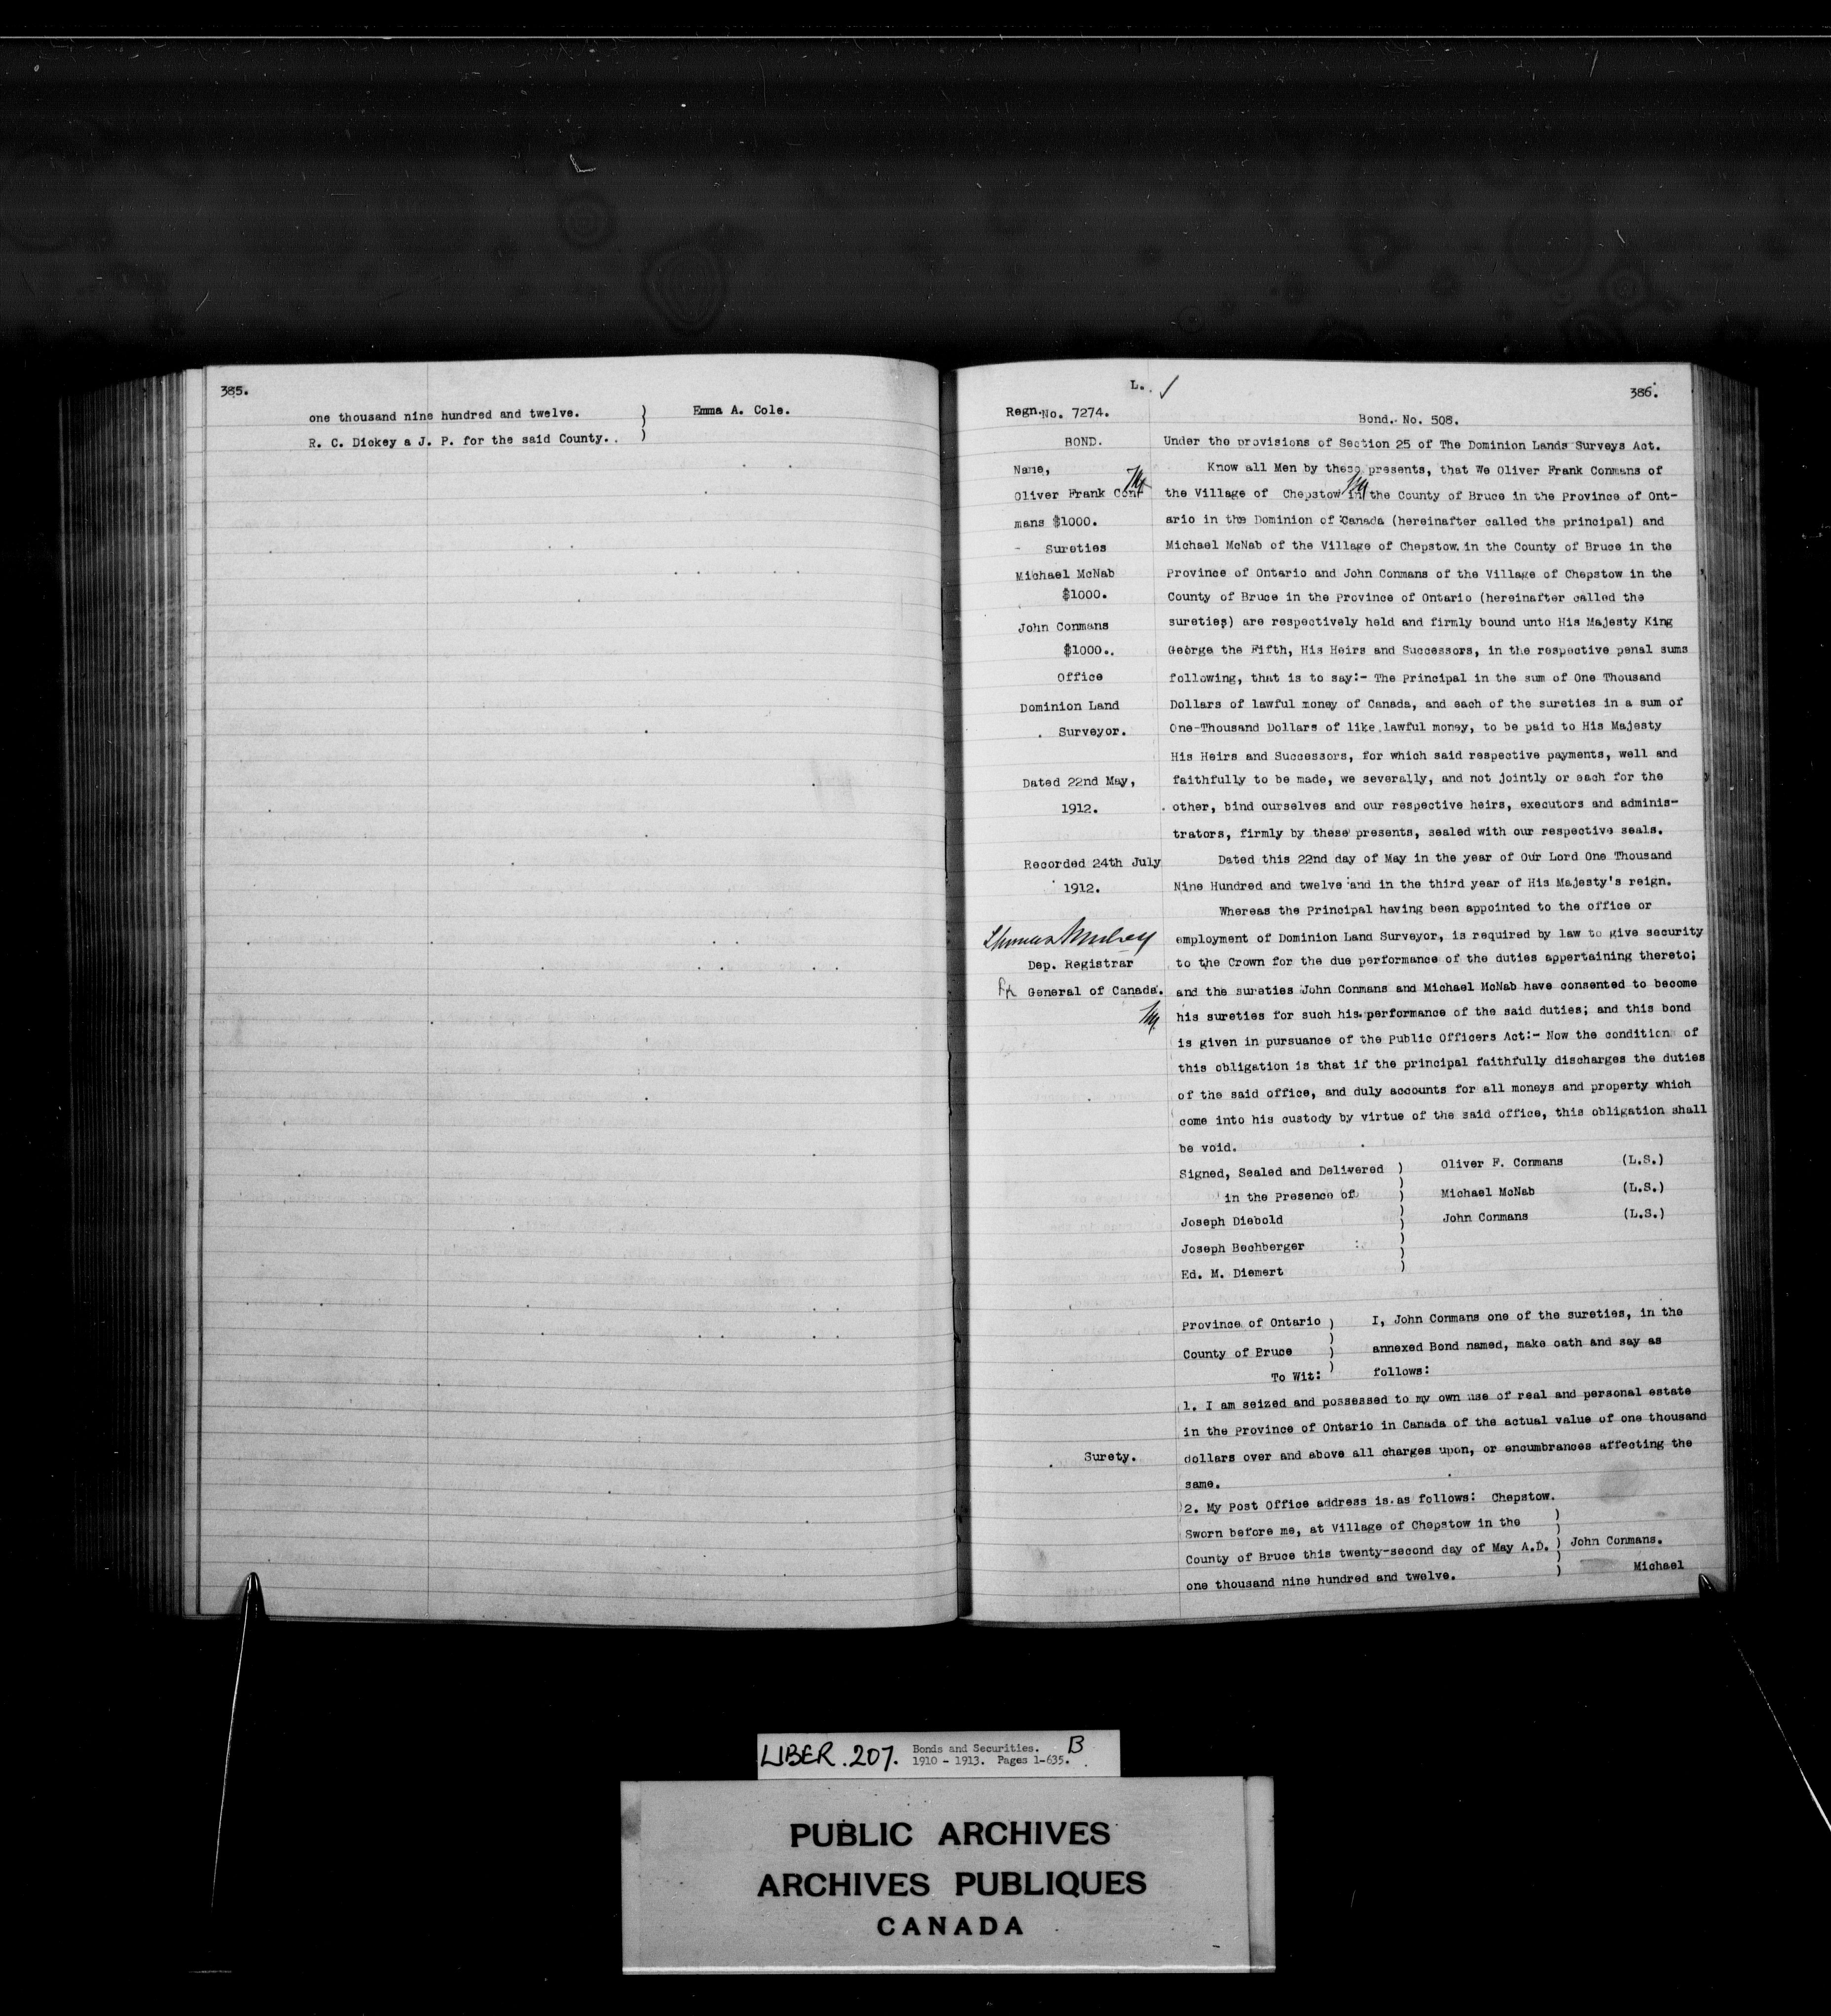 385.
one thousand nine hundred and twelve. ) Emma A. Cole.
R. C. Dickey a J. P. for the said County. )
L. ✓
386.
Regn. No. 7274.
BOND.
Name,
Oliver Frank Con-
mans $1000.
Sureties
Michael McNab
$1000.
John Conmans
$1000.
Office
Dominion Land
Surveyor.
Dated 22nd May,
1912.
Recorded 24th July
1912.
Thomas Mulvey
Dep. Registrar
General of Canada.
Surety.
Bond. No. 508.
Under the provisions of Section 25 of The Dominion Lands Surveys Act.
Know all Men by these presents, that We Oliver Frank Conmans of
the Village of Chepstow in the County of Bruce in the Province of Ont-
ario in the Dominion of Canada (hereinafter called the principal) and
Michael McNab of the Village of Chepstow in the County of Bruce in the
Province of Ontario and John Conmans of the Village of Chepstow in the
County of Bruce in the Province of Ontario (hereinafter called the
sureties) are respectively held and firmly bound unto His Majesty King
George the Fifth, His Heirs and Successors, in the respective penal sums
following, that is to say:- The Principal in the sum of One Thousand
Dollars of lawful money of Canada, and each of the sureties in a sum of
One-Thousand Dollars of like lawful money, to be paid to His Majesty
His Heirs and Successors, for which said respective payments, well and
faithfully to be made, we severally, and not jointly or each for the
other, bind ourselves and our respective heirs, executors and adminis-
trators, firmly by these presents, sealed with our respective seals.
Dated this 22nd day of May in the year of Our Lord One Thousand
Nine Hundred and twelve and in the third year of His Majesty's reign.
Whereas the Principal having been appointed to the office or
employment of Dominion Land Surveyor, is required by law to give security
to the Crown for the due performance of the duties appertaining thereto;
and the sureties John Conmans and Michael McNab have consented to become
his sureties for such his performance of the said duties; and this bond
is given in pursuance of the Public Officers Act:- Now the condition of
this obligation is that if the principal faithfully discharges the duties
of the said office, and duly accounts for all moneys and property which
come into his custody by virtue of the said office, this obligation shall
be void.
Signed, Sealed and Delivered ) Oliver F. Conmans (L.S.)
in the Presence of ) Michael McNab (L.S.)
Joseph Diebold ) John Conmans (L.S.)
Joseph Bechberger )
Ed. M. Diemert )
Province of Ontario ) I, John Conmans one of the sureties, in the
County of Bruce ) annexed Bond named, make oath and say as
To Wit: ) follows:
1. I am seized and possessed to my own use of real and personal estate
in the Province of Ontario in Canada of the actual value of one thousand
dollars over and above all charges upon, or encumbrances affecting the
same.
2. My Post Office address is as follows: Chepstow.
Sworn before me, at Village of Chepstow in the )
County of Bruce this twenty-second day of May A.D. ) John Conmans.
one thousand nine hundred and twelve. ) Michael
LIBER. 207. Bonds and Securities. B
1910 - 1913. Pages 1-635.
PUBLIC ARCHIVES
ARCHIVES PUBLIQUES
CANADA